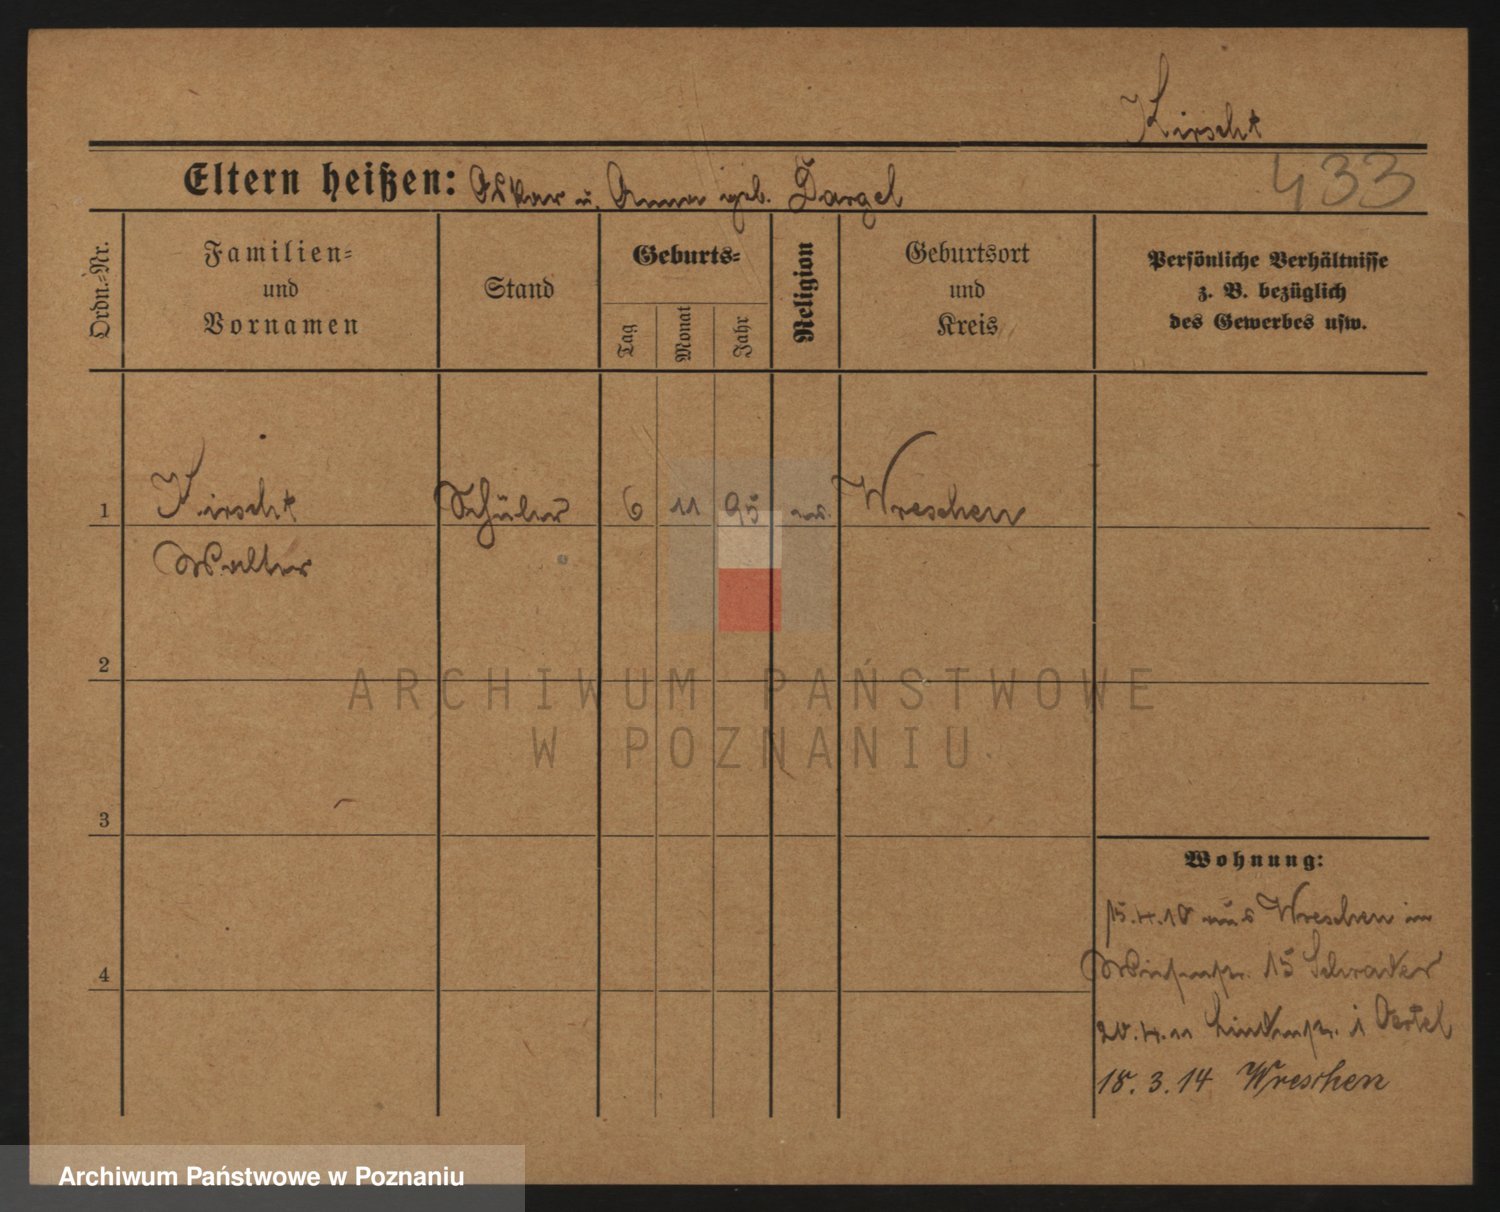 Kirscht
433
Eltern heißen: Oskar u. Anna geb. Dargel
Ordn.=Nr.
Familien=
und
Vornamen
Stand
Geburts=
Tag
Monat
Jahr
Religion
Geburtsort
und
Kreis
Persönliche Verhältnisse
z. B. bezüglich
des Gewerbes usw.
1
Kirscht
Walter
Schüler
6
11
95
ev.
Wreschen
2
3
4
Wohnung:
15.4.10 aus Wreschen in
15 Schrader
20.4.11 1 Oertel
18.3.14 Wreschen
ARCHIWUM PAŃSTWOWE
W POZNANIU
Archiwum Państwowe w Poznaniu